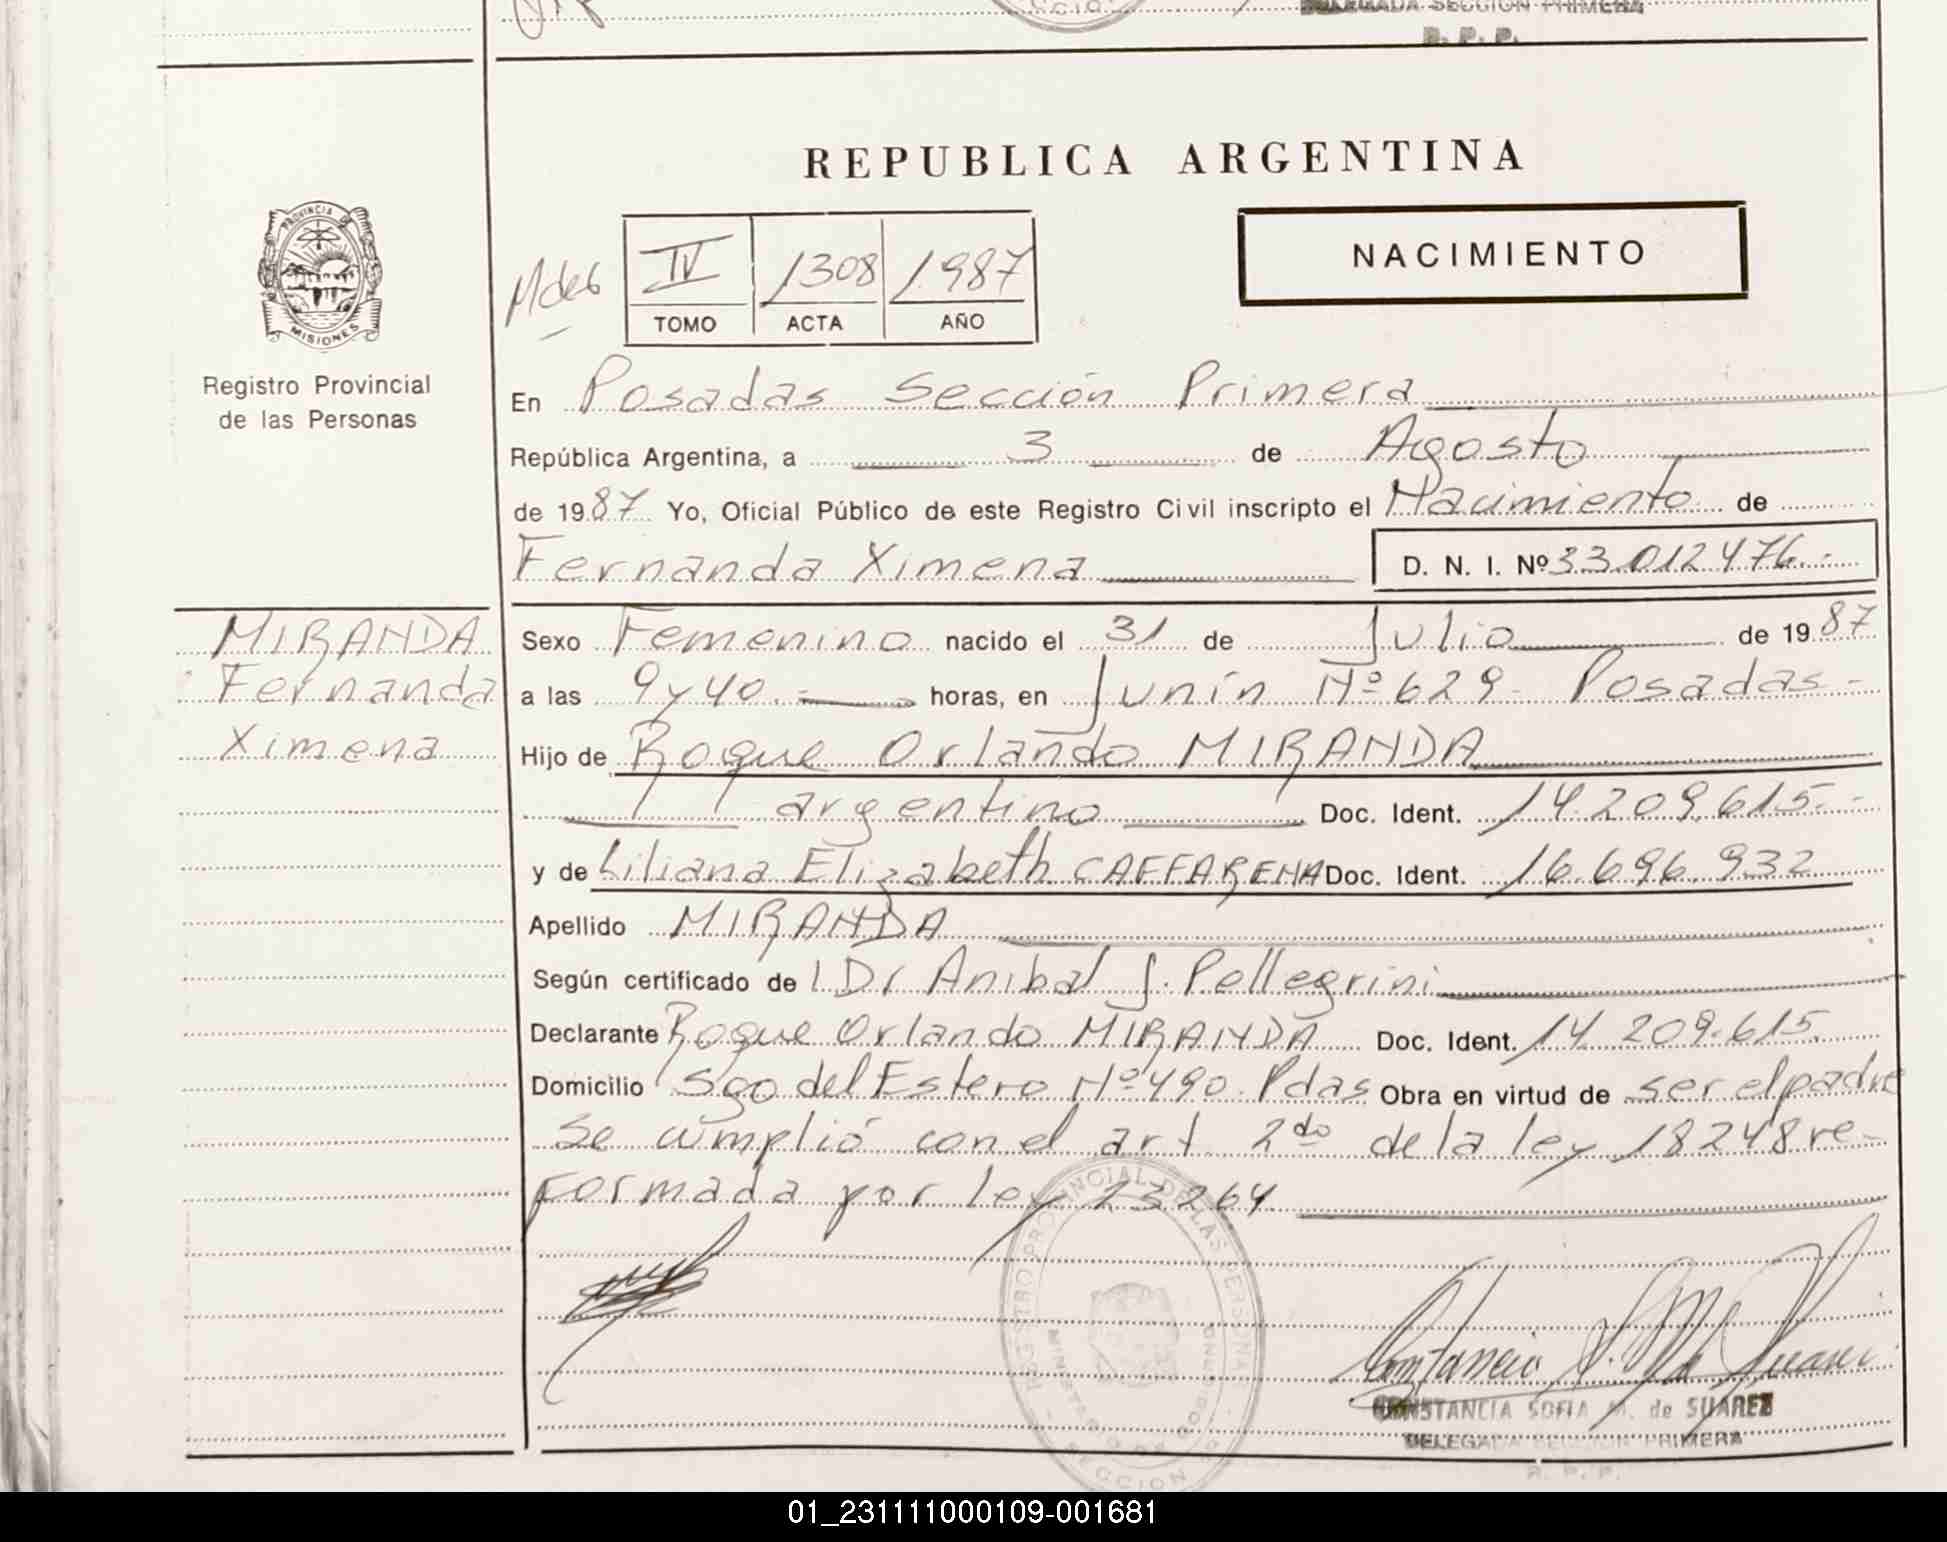 DELEGADA SECCION PRIMERA
R. P. P.
REPUBLICA ARGENTINA
PROVINCIA DE
MISIONES
Registro Provincial
de las Personas
IV 1308 1987
TOMO ACTA AÑO
NACIMIENTO
En Posadas Sección Primera
República Argentina, a 3 de Agosto
de 1987 Yo, Oficial Público de este Registro Civil inscripto el Nacimiento de
Fernanda Ximena D. N. I. Nº 33.012476.-
MIRANDA
Fernanda
Ximena
Sexo Femenino nacido el 31 de Julio de 1987
a las 9 y 40.- horas, en Junín Nº 629- Posadas-
Hijo de Roque Orlando MIRANDA
argentino Doc. Ident. 14.209.615.-
y de Liliana Elizabeth CAFFARENA Doc. Ident. 16.696.932
Apellido MIRANDA
Según certificado de l Dr Anibal J. Pellegrini
Declarante Roque Orlando MIRANDA Doc. Ident. 14.209.615.
Domicilio Sgo del Estero Nº 490. Pdas Obra en virtud de ser el padre
Se cumplió con el art 2do de la ley 18248 re-
formada por ley 23264.
REGISTRO PROVINCIAL DE LAS PERSONAS
MINISTERIO DE GOBIERNO
SECCION
CONSTANCIA SOFIA M. de SUAREZ
DELEGADA SECCION PRIMERA
R. P. P.
01_231111000109-001681